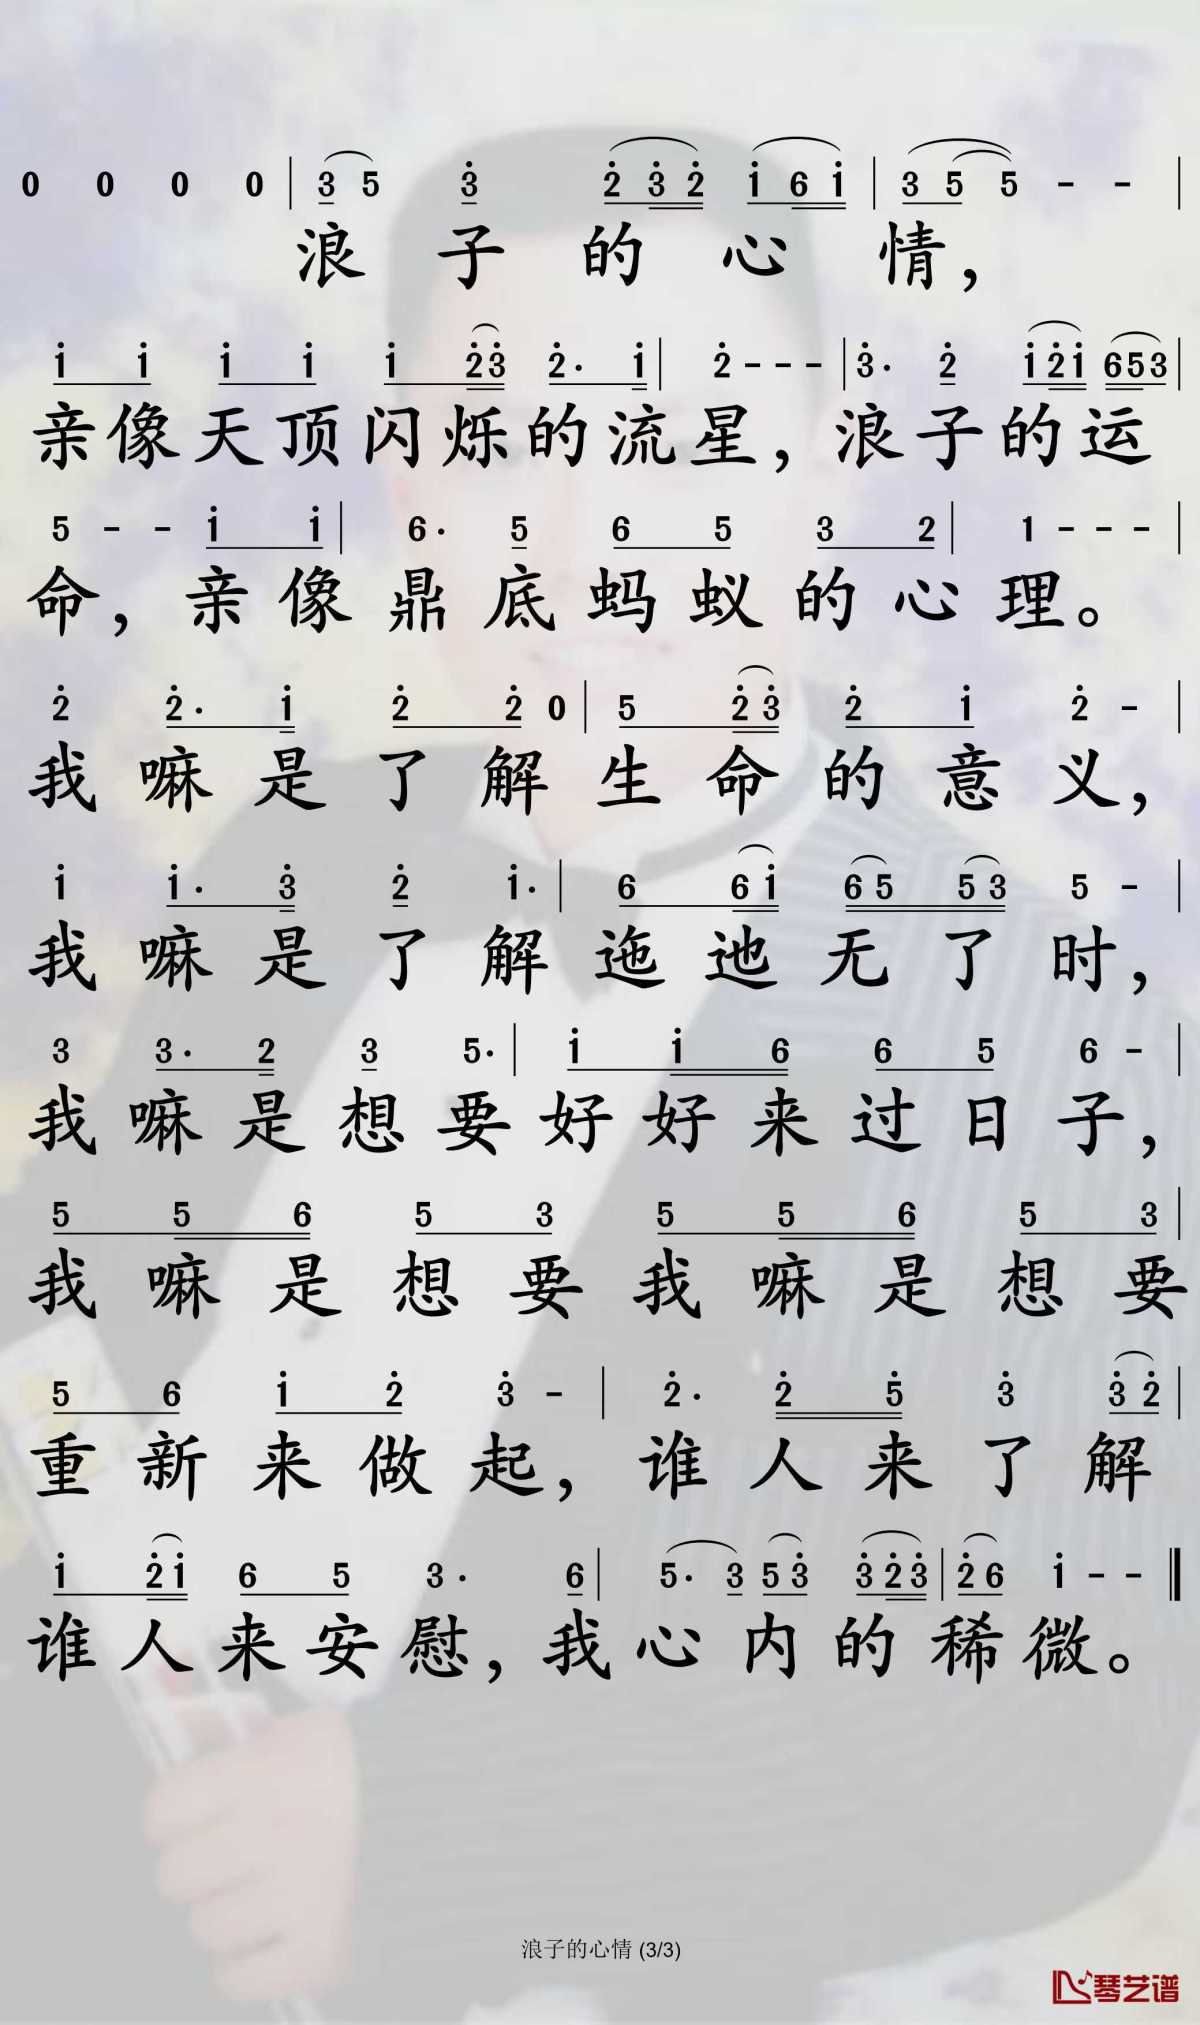 0 0 0 0 | 3 5 3 2 3 2 1 6 1 | 3 5 5 - - |
浪子的心情，
1 1 1 1 1 2 3 2· 1 | 2 - - - | 3· 2 1 2 1 6 5 3 |
亲像天顶闪烁的流星，浪子的运
5 - - 1 1 | 6· 5 6 5 3 2 | 1 - - - |
命，亲像鼎底蚂蚁的心理。
2 2· 1 2 2 0 | 5 2 3 2 1 2 - |
我嘛是了解生命的意义，
1 1· 3 2 1· | 6 6 1 6 5 5 3 5 - |
我嘛是了解迤迆无了时，
3 3· 2 3 5· | 1 1 6 6 5 6 - |
我嘛是想要好好来过日子，
5 5 6 5 3 5 5 6 5 3 |
我嘛是想要我嘛是想要
5 6 1 2 3 - | 2· 2 5 3 3 2 |
重新来做起，谁人来了解
1 2 1 6 5 3· 6 | 5· 3 5 3 3 2 3 | 2 6 1 - - ‖
谁人来安慰，我心内的稀微。
浪子的心情 (3/3)
琴艺谱